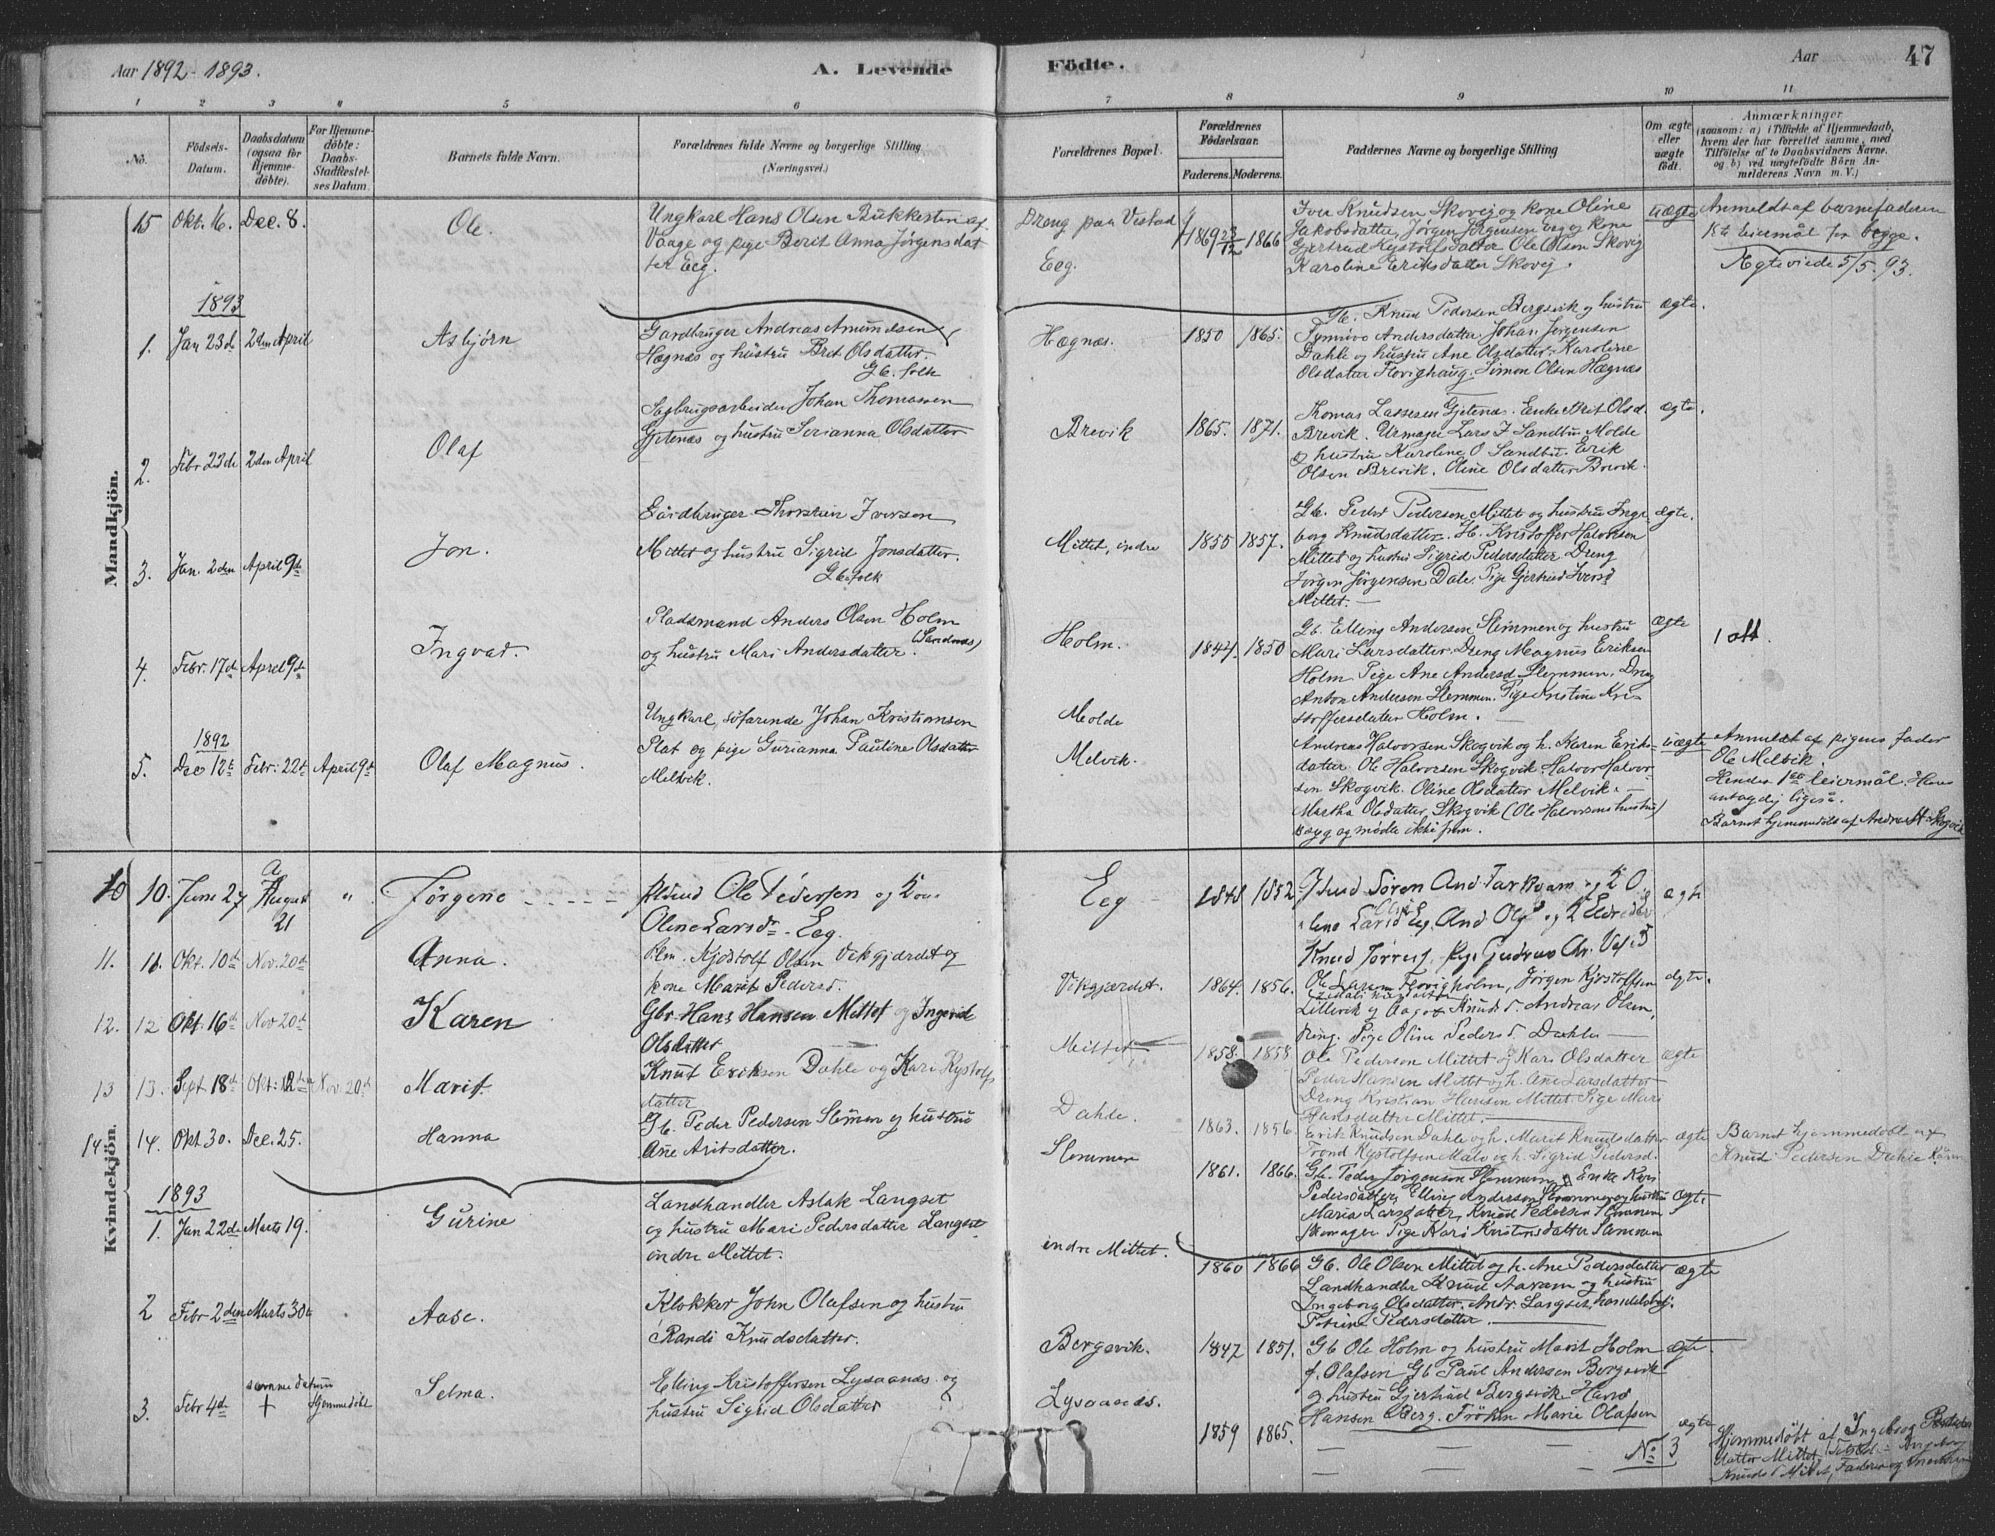 Aar 1892-1893.
A. Levende
Födte.
Aar
47
1 2 3 4 5 6 7 8 9 10 11
No.
Födsels-Datum.
Daabsdatum (ogsaa for Hjemme-döbte).
For Hjemme-döbte: Daabs-Stadfæstel-ses Datum.
Barnets fulde Navn.
Forældrenes fulde Navne og borgerlige Stilling (Næringsvei.)
Forældrenes Bopæl.
Forældrenes Födselsaar.
Faderens. Moderens.
Faddernes Navne og borgerlige Stilling
Om ægte eller uægte födt.
Anmærkninger
(saasom: a) i Tilfælde af Hjemmedaab,
hvem der har forrettet samme, med
Tilföielse af to Daabsvidners Navne,
og b) ved uægtefödte Börn An-
melderens Navn m. V.)
Mandkjön.
15 Okt. 16. Dec. 8. Ole.
Ungkarl Hans Olsen Bukkesten af
Vaage og pige Berit Anna Jørgensdat
ter Eeg.
Dreng paa Vestad
Eeg.
1869 23/12 1866
Iver Knudsen Skovej og kone Oline
Jakobsdatter, Jørgen Jørgensen Eeg og kone
Gjertrud Kystolfsdatter Ole Olsen Skovej
Karoline Eriksdatter Skovej.
uægte
Anmeldt af barnefaderen
1ste leiermål for begge.
Ægteviede 5/5. 93.
1893
1. Jan 23d 2den April Asbjørn
Gardbruger Andreas Amundsen
Hægnæs og hustru Brit Olsdatter.
Gb. folk
Hægnæs. 1850 1865.
Gb. Knud Pedersen Bergsvik og hustru
Synnøve Andersdatter. Johan Jørgensen
Dahle og hustru Ane Olsdatter. Karoline
Olsdatter Florighaug. Simon Olsen Hægnæs
ægte.
2. Febr 22de 2den April Olaf
Sagbrugsarbeider Johan Thomassen
Gjetenæs og hustru Serianna Olsdatter
Brevik 1865. 1871.
Thomas Lassesen Gjetenæs. Enke Brit Olsd.
Brevik. Urmager Lars J Sandbu Molde
og hustru Karoline O Sandbu. Erik
Olsen Brevik. Oline Olsdatter Brevik.
ægte.
3. Jan. 2den April 9de Jon.
Gårdbruger Thorstein Iversen
Mittet og hustru Sigrid Jonsdatter.
Gb. folk
Mittet, indre 1855 1857.
Gb. Peder Pedersen Mittet og hustru Inge
borg Knudsdatter. H. Kristoffer Halvorsen
Mittet og hustru Sigrid Pedersdatter Dreng
Jørgen Jørgensen Dale. Pige Gjertrud Iversd
Mittet.
ægte.
4. Febr. 17d. April 9de Ingvar.
Pladsmand Anders Olsen Holm
(Sandnæs)
og hustru Mari Andersdatter.
Holm. 1847. 1850
Gb. Elling Andersen Slemmen og hustru
Mari Larsdatter. Dreng Magnus Eriksen
Holm Pige Ane Andersd Slemmen. Dreng
Anton Andersen Slemmen. Pige Kristine Kri-
stoffersdatter Holm.
ægte
1 att.
1892
5. Dec 12te Febr. 22de April 9de Olaf Magnus.
Ungkarl, søfarende Johan Kristiansen
Plat og pige Gurianna Pauline Olsdatter
Melvik.
Molde
Melvik.
Andreas Halvorsen Skogvik og h. Karen Eriks-
datter Ole Halvorsen Skogvik. Halvor Halvor-
sen Skogvik. Oline Olsdatter Melvik.
Martha Olsdatter Skogvik (Ole Halvorsens hustru)
syg og mødte ikke frem.
uægte
Anmeldt af pigens fader
Ole Melvik.
Hendes 1ste leiermål. Hans
antagelig ligeså.
Barnet hjemmedøbt af Andreas H. Skogvik
Kvindekjön.
10 10. Juni 27 August 21 " Jørgine
Ole Pedersen og Kone
Oline Larsdr. Eeg.
Eeg 1848 1852
ægte
11. 11. Okt. 10de Nov. 20de Anna.
Kjøstolf Olsen Vikgjærdet og
kone Marit Pedersd.
Vikgjærdet. 1864. 1856.
Ole Larsen Florigholm, Jørgen Kjøstolfsen
Lillevik og Aagot Knudsd. Andreas Olsen,
Ring. Pige Oline Pedersd. Dahle
ægte.
12. 12 Okt. 16de Nov 20de Karen
Gbr. Hans Hansen Mittet og Ingerid
Olsdatter
Mittet 1858. 1858
Ole Pedersen Mittet og Kari Olsdatter
Peder Hansen Mittet og h. Ane Larsdatter
Dreng Kristian Hansen Mittet Pige Mari
Hansdatter Mittet.
ægte
13 13. Sept. 18de Okt. 12te Nov. 20de Marit.
Knut Eriksen Dahle og Kari Kystolfs
datter
Dahle. 1863. 1856.
Erik Knudsen Dahle og h. Marit Knudsdatter
Trond Kystolfsen Malo og h. Sigrid Pedersd.
ægte
Barnet hjemmedøbt af
Knud Pedersen Dahle
14 14. Okt 30. Dec. 25. Hanna
Gb. Peder Pedersen Slemmen og hustru
Ane Aritsdatter.
Slemmen 1861. 1866.
Gb. Peder Jørgensen Slemmen, Enke Kari
Pedersdatter, Elling Andersen Slemmen og hustru
Maria Larsdatter, Knud Pedersen Slemmen
Skomager Pige Kari Kristensdatter Slemmen
ægte
1893
1. Jan 22de Marts 19. Gurine
Landhandler Aslak Langset
og hustru Mari Pedersdatter Langset
indre Mittet.
indre Mittet. 1860 1866
Gb. Ole Olsen Mittet og h. Ane Pedersdatter
Landhandler Knud Aaram og hustru
Ingeborg Olsdatter. Andr Langset, handelsbetj.
Petrine Pedersdatter.
ægte
2 Febr 2den Marts 30te Aase.
Klokker John Olafsen og hustru
Randi Knudsdatter.
Bergsvik. 1847 1851.
Gb Ole Holm og hustru Marit Holm
f. Olafsen Gb Paul Andersen Bergsvik
og hustru Gjertrud Bergsvik Hans
Hansen Berg. Frøken Marie Olafsen
ægte.
3. Febr 4de samme datum + hjemmedøbt Selma.
Elling Kristoffersen Lysaanæs og
hustru Sigrid Olsdatter
Lysaanæs. 1859 1865.
No 3
ægte
Hjemmedøbt af Ingeborg Peders
datter Mittet